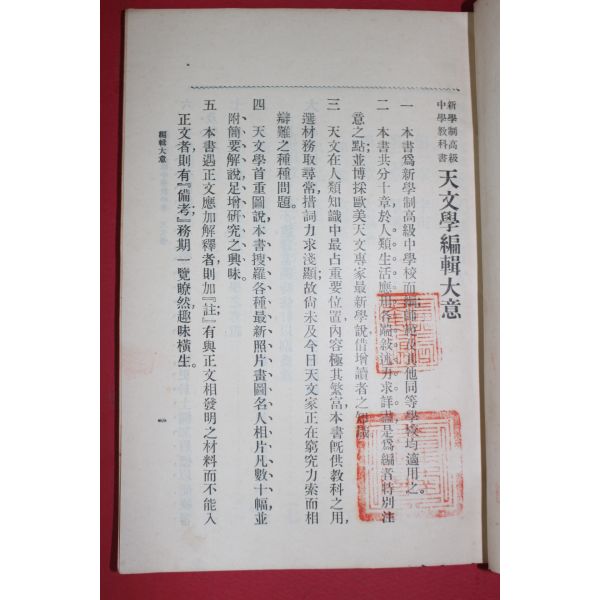 新學制高級
中學教科書 天文學編輯大意
一 本書爲新學制高級中學校而編師校及其他同等學校均適用之。
二 本書共分十章於人類生活應用各端敍述力求詳盡是爲編者特別注
意之點並博採歐美天文專家最新學說借增讀者之知識
三 天文在人類知識中最占重要位置內容極其繁富本書旣供教科之用、
選材務取尋常措詞力求淺顯故尚未及今日天文家正在窮究力索而相
辯難之種種問題。
四 天文學首重圖說本書搜羅各種最新照片畫圖名人相片凡數十幅並
附簡要解說足增研究之興味。
五 本書遇正文應加解釋者則加『註』有與正文相發明之材料而不能入
正文者則有『備考』務期一覽瞭然趣味橫生。
編輯大意
一